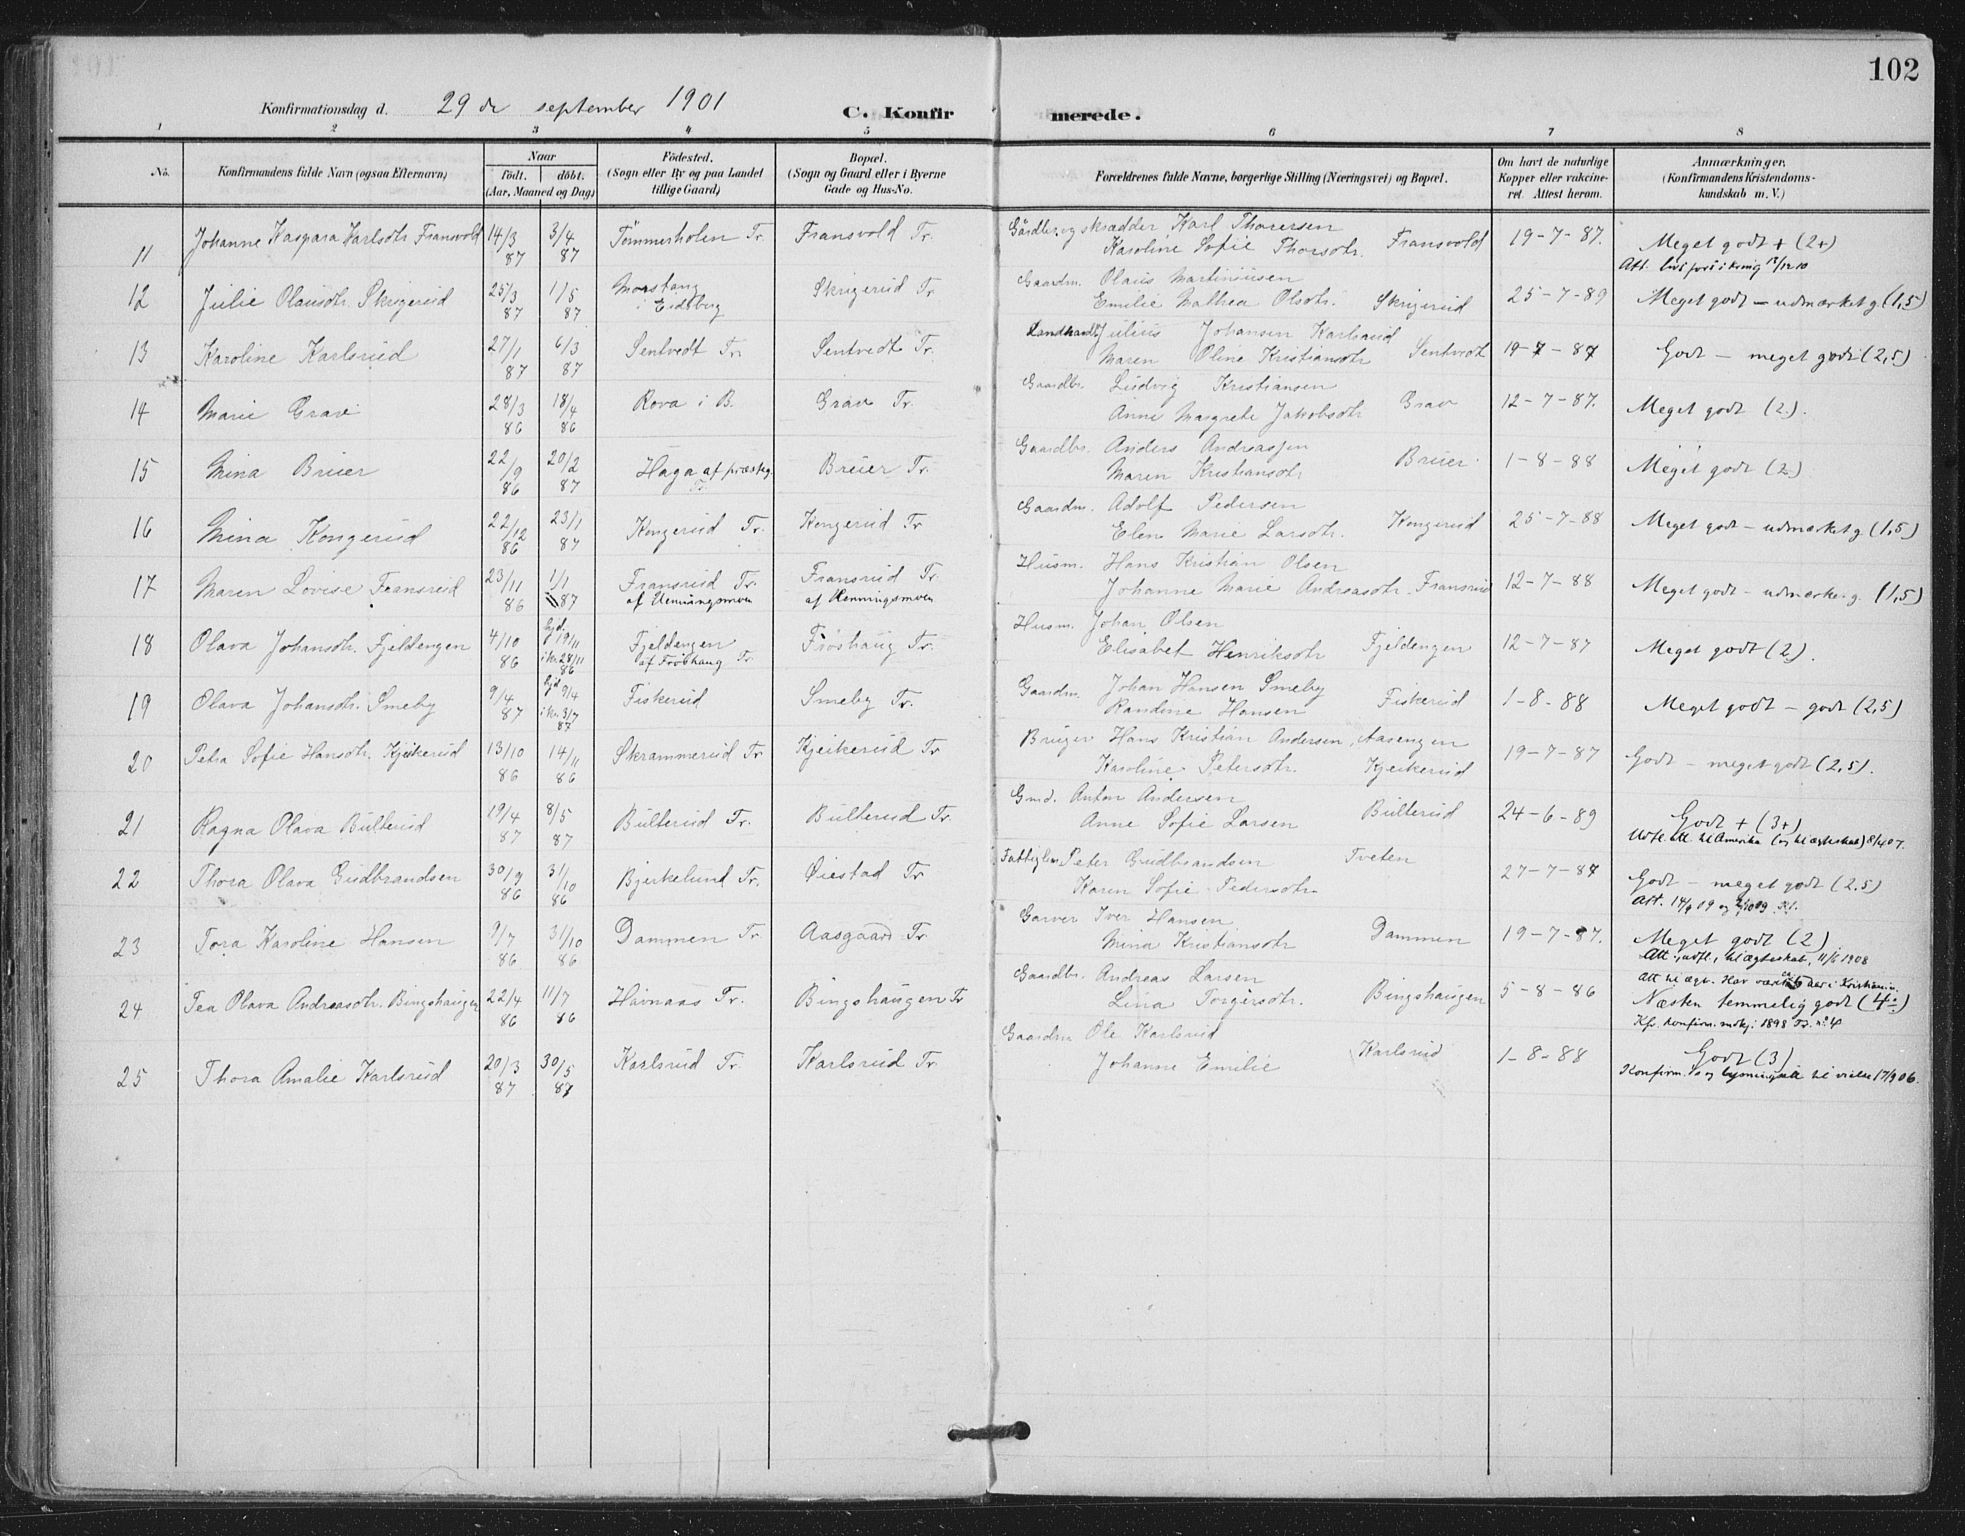 102
Konfirmationsdag d. 29 de september 1901 C. Konfirmerede.
1 2 3 4 5 6 7 8
No. Konfirmandens fulde Navn (ogsaa Efternavn) Naar Födested. Bopæl. Forældrenes fulde Navne, borgerlige Stilling (Næringsvei) og Bopæl. Om havt de naturlige Anmærkninger.
födt. döbt. (Sogn eller By og paa Landet (Sogn og Gaard eller i Byerne Kopper eller vakcine- (Konfirmandens Kristendoms-
(Aar, Maaned og Dag) tillige Gaard) Gade og Hus-No. ret. Attest herom. kundskab m. V.)
11 Johanne Kaspara Karlsdtr Fransvold 14/3 87 3/4 87 Tömmerholen Tr. Fransvold Tr. Gårdbr. og skrædder Karl Thoresen
Karoline Sofie Thorsdtr. Fransvold 19-7-87. Meget godt + (2+)
12 Julie Olausdtr. Skrigerud 25/3 87 1/5 87 Morstang Eidsberg Skrigerud Tr Gaardm. Olaus Martiniusen
Emilie Mathea Olsdtr. Skrigerud 25-7-89 Meget godt – udmærket g. (1,5)
13 Karoline Karlsrud 27/1 87 6/3 87 Sentvedt Tr. Sentvedt Tr. Landhandl. Julius Johansen Karlsrud
Maren Oline Kristiansdtr Sentvedt 19-7-87 Godt – meget godt (2,5)
14 Marie Grav 28/3 86 18/4 86 Rova i B. Grav Tr. Gaardbr. Ludvig Kristiansen
Anne Margrete Jakobsdtr Grav 12-7-87. Meget godt (2).
15 Mina Bruer 22/9 86 20/2 87 Haga af præsteg. Tr. Bruer Tr. Gaardbr. Anders Andreassen
Maren Kristiansdtr Bruer 1-8-88 Meget godt (2)
16 Mina Kongerud 22/12 86 23/1 87 Kongerud Tr. Kongerud Tr Gaardm. Adolf Pedersen
Elen Marie Larsdtr. Kongerud 25-7-88 Meget godt – udmærket g (1,5)
17 Maren Lovise Fransrud 23/11 86 1/1 87 Fransrud Tr. af Henningsmoen Fransrud Tr. af Henningsmoen Husm. Hans Kristian Olsen
Johanne Marie Andreasdtr. Fransrud 12-7-88 Meget godt – udmærket g. (1,5)
18 Olava Johansdtr. Fjeldengen 4/10 86 hjd. 19/11 i kr. 28/11 86 Fjeldengen af Fröshaug Tr. Fröshaug Tr. Husm. Johan Olsen
Elisabet Henriksdtr Fjeldengen 12-7-87 Meget godt (2).
19 Olava Johansdtr. Smeby 9/4 87 hjd 9/4 i kr. 3/7 87 Fiskerud Smeby Tr. Gaardm. Johan Hansen Smeby
Randine Hansen Fiskerud 1-8-88 Meget godt – godt (2,5)
20 Petra Sofie Hansdtr. Kjeikerud 13/10 86 14/11 86 Skrammerud Tr Kjeikerud Tr Bruger Hans Kristian Andersen, Aasengen
Karoline Petersdtr. Kjeikerud 19-7-87 Godt – meget godt (2,5).
21 Ragna Olava Bulterud 19/4 87 8/5 87 Bulterud Tr. Bulterud Tr. Gmd. Anton Andersen
Anne Sofie Larsen Bulterud 24-6-89 Godt + (3+)
Udfl. att. til Amerika (og til ægteskab) 8/4 07.
22 Thora Olava Gudbrandsen 30/9 86 31/10 86 Bjerkelund Tr. Øiestad Tr Fattiglm Peter Gudbrandsen Tveten
Karen Sofie Pedersdtr. 27-7-87 Godt – meget godt (2,5)
23 Tora Karoline Hansen 9/7 86 31/10 86 Dammen Tr. Aasgaard Tr. Garver Iver Hansen
Mina Kristiansdtr Dammen 19-7-87. Meget godt (2)
Att., udfl., til ægteskab, 11/6 1908
24 Tea Olava Andreasdtr. Bingshaugen 22/4 86 11/7 86 Havnaas Tr. Bingshaugen Tr Gaardbr. Andreas Larsen
Lina Torgersdtr. Bingshaugen 5-8-86 Næsten temmelig godt (4÷)
Kfr. konfirm. mdkj. 1898 Tr. nº 4
25 Thora Amalie Karlsrud 20/3 87 30/5 87 Karlsrud Tr. Karlsrud Tr. Gaardm Ole Karlsrud
Johanne Emilie Karlsrud 1-8-88 Godt (3)